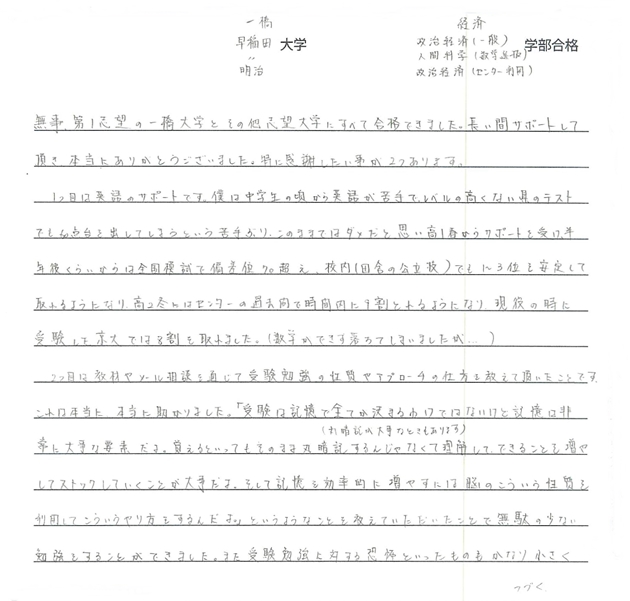 一橋 経済
早稲田 大学 政治経済(一般) 学部合格
〃 人間科学(数学選抜)
明治 政治経済(センター利用)
無事、第1志望の一橋大学とその他志望大学にすべて合格できました。長い間サポートして
頂き本当にありがとうございました。特に感謝したい事が2つあります。
1つ目は英語のサポートです。僕は中学生の頃から英語が苦手で、レベルの高くない県のテスト
でも40点台を出してしまうという苦手ぶり、このままではダメだと思い高1春からサポートを受け、半
年後くらいからは全国模試で偏差値70超え、校内(田舎の公立校)でも1~3位を安定して
取れるようになり、高2冬にはセンターの過去問で時間内に9割とれるようになり、現役の時に
受験した京大では8割を取れました。(数学ができず落ちてしまいましたが…)
2つ目は教材やメール相談を通じて受験勉強の性質やアプローチの仕方を教えて頂いたことです。
これは本当に本当に助かりました。「受験は記憶で全てが決まるわけではないけど記憶は非
(丸暗記が大事なときもあります)
常に大事な要素だよ。覚えるといってもそのまま丸暗記するんじゃなくて理解して、できることを増や
してストックしていくことが大事だよ。そして記憶を効率的に増やすには脳のこういう性質を
利用してこういうやり方をするんだよ。」というようなことを教えていただいたことで無駄の少ない
勉強をすることができました。また受験勉強に対する恐怖といったものもかなり小さく
つづく